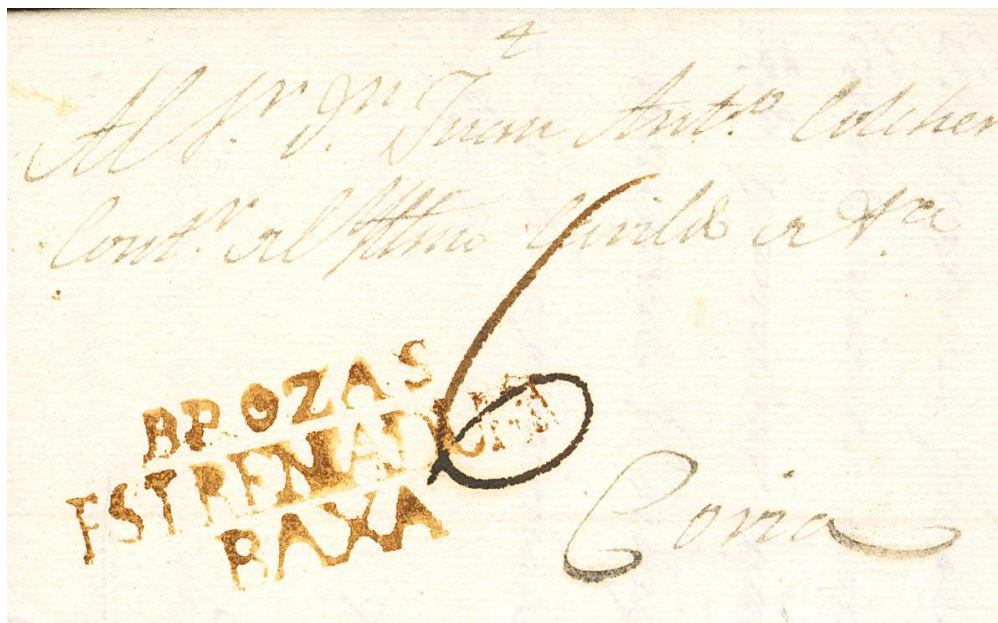 4
Al S.r D.n Juan Ant.o Colcher
Cont.r al Illmo Cavildo
6
BROZAS
ESTREMADURA
BAXA
Coria